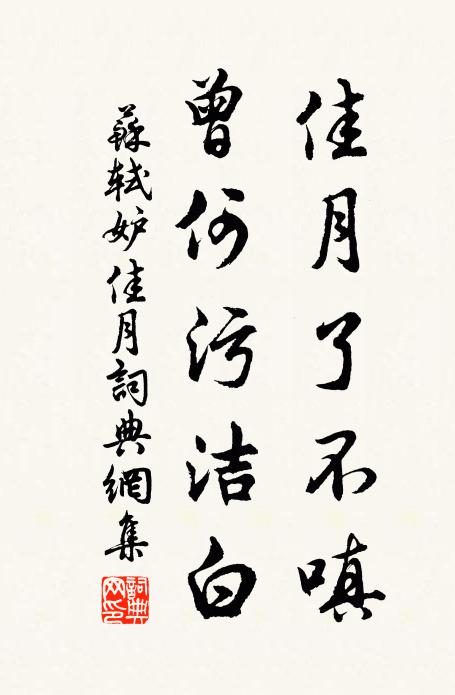 佳月了不嗔
曾何污洁白
蘇軾妒佳月詞典網集
詞典网印